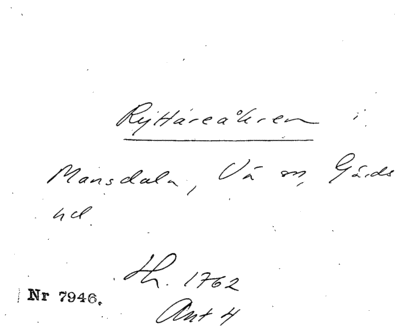 Ryttareåkren i
Mansdala, Vä sn, Gärds
hd.
Hh. 1762
Ant 4
Nr 7946.